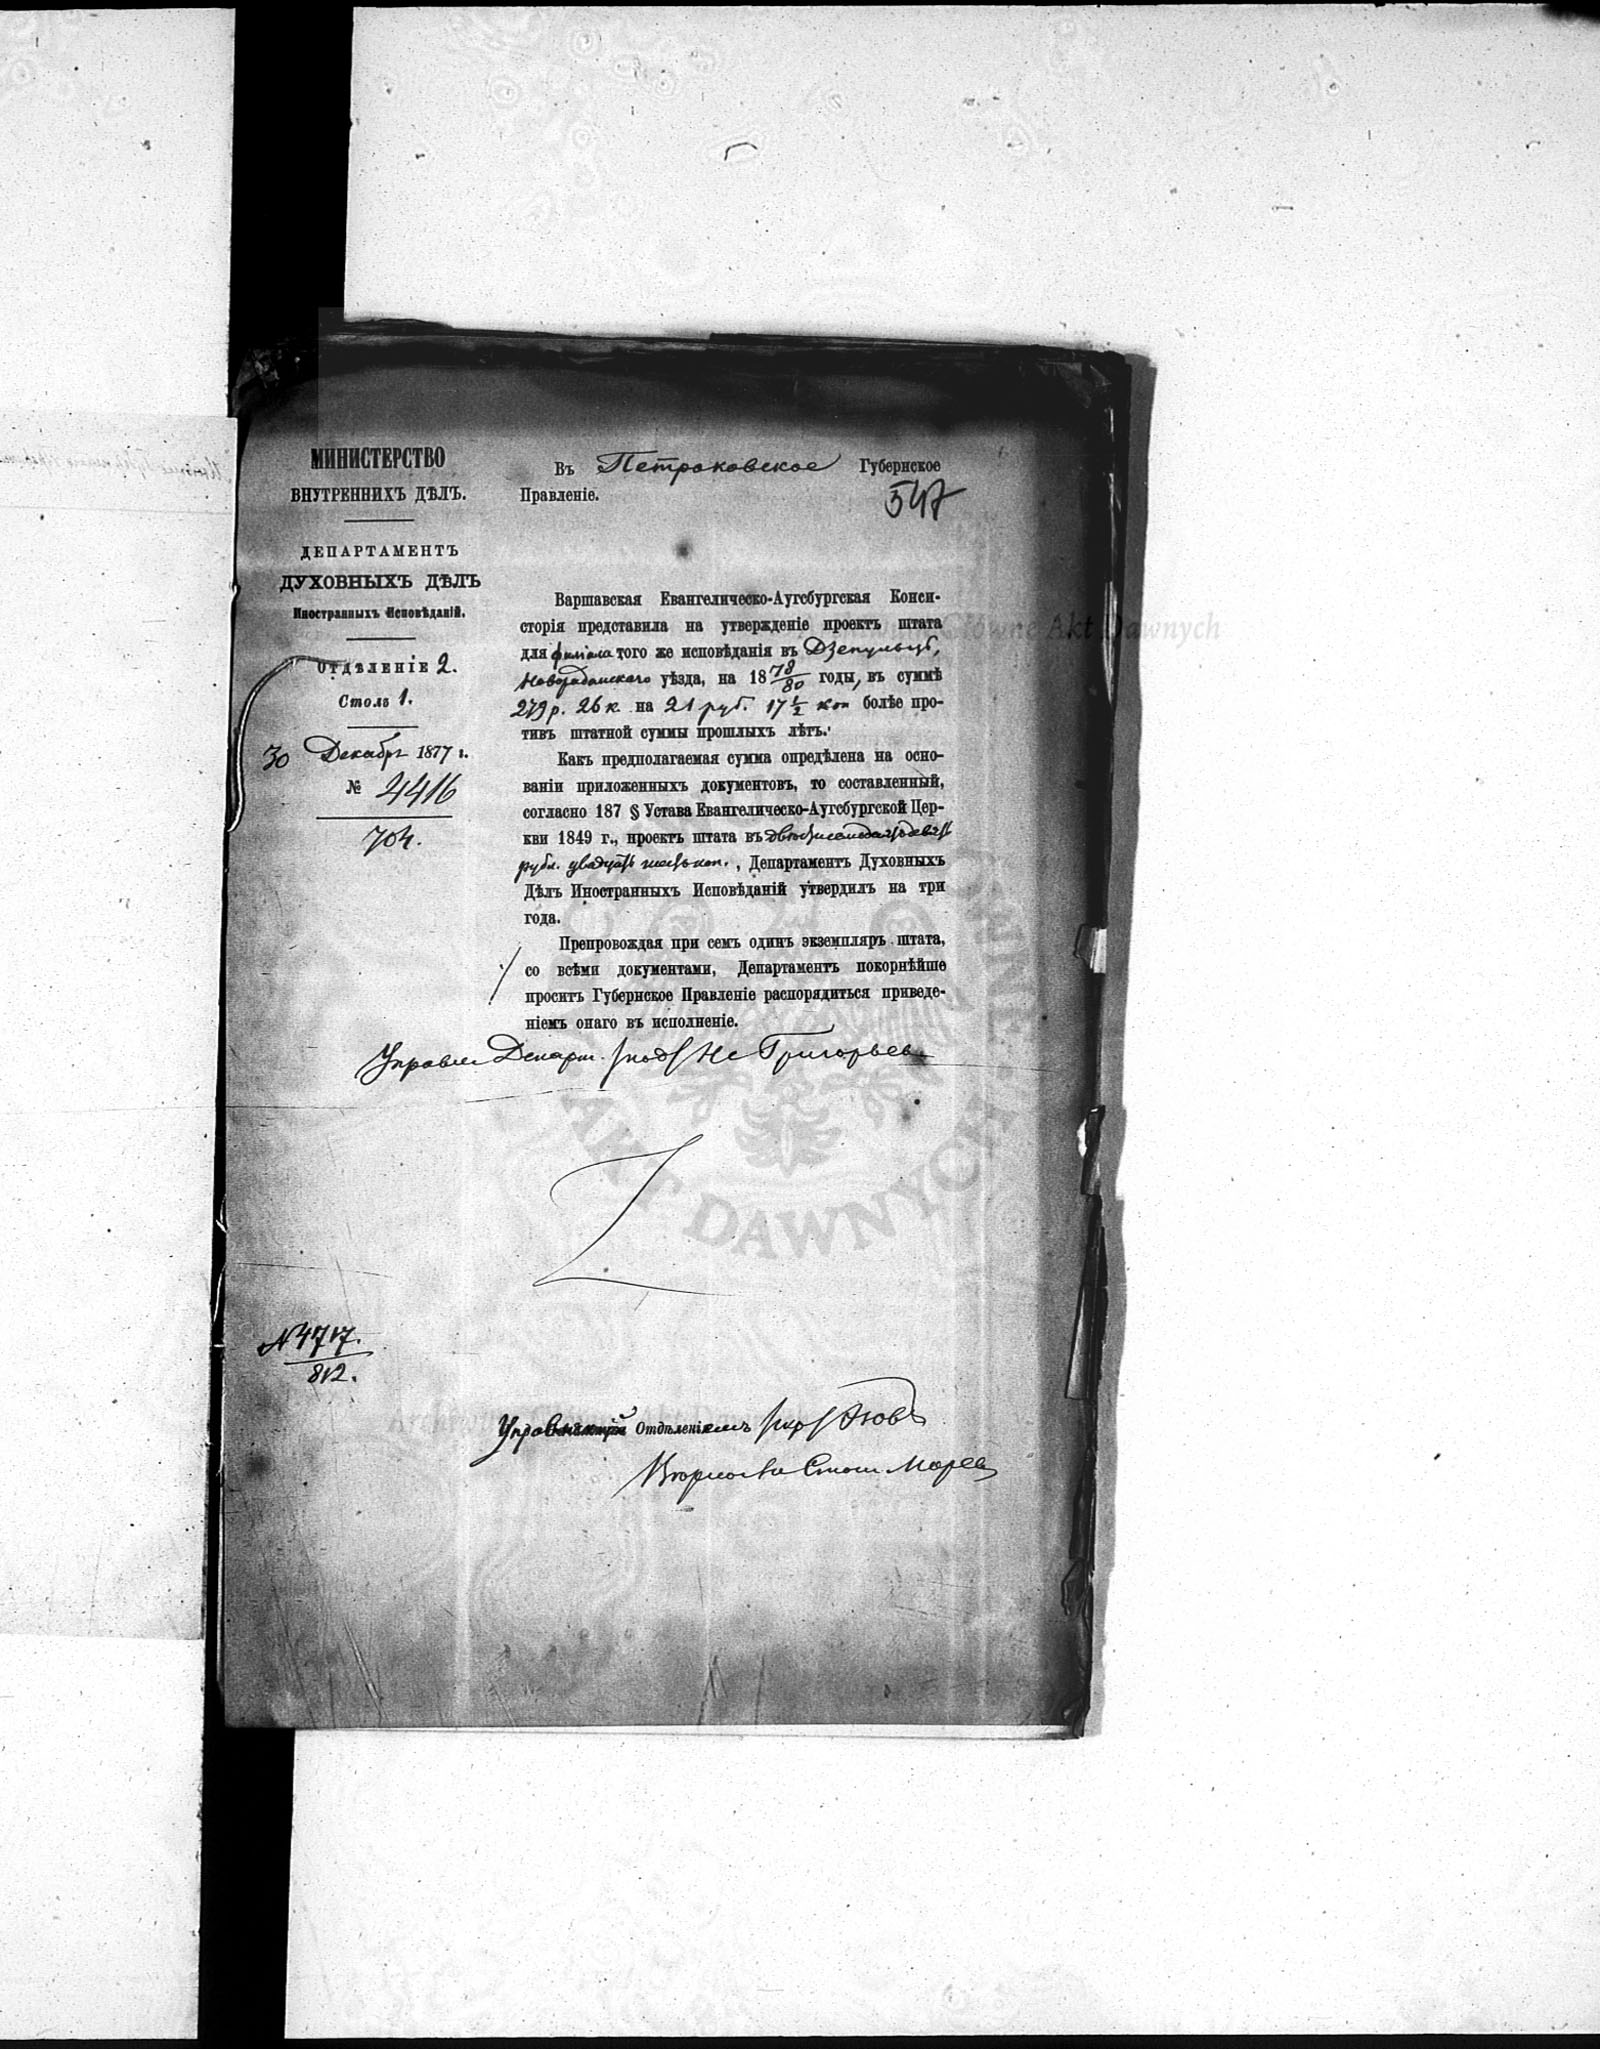 МИНИСТЕРСТВО
ВНУТРЕННИХЪ ДѢЛЪ.
ДЕПАРТАМЕНТЪ
ДУХОВНЫХЪ ДѢЛЪ
Иностранныхъ Исповѣданій.
ОТДѢЛЕНІЕ 2.
Столъ 1.
30 Декабр 1877 г.
№ 4416
704.
Въ Петроковское Губернское
Правленіе.
547
Варшавская Евангелическо-Аугсбургская Конси-
сторія представила на утвержденіе проектъ штата
для филіала того же исповѣданія въ
Новорадомскаго уѣзда, на 18 78/80 годы, въ суммѣ
279 р. 26 к. на 21 руб. 17 1/2 коп болѣе про-
тивъ штатной суммы прошлыхъ лѣтъ.
Какъ предполагаемая сумма опредѣлена на осно-
ваніи приложенныхъ документовъ, то составленный,
согласно 187 § Устава Евангелическо-Аугсбургской Цер-
кви 1849 г., проектъ штата въ двѣсти семьдесятъ девять
рубл. двадцать шесть коп., Департаментъ Духовныхъ
Дѣлъ Иностранныхъ Исповѣданій утвердилъ на три
года.
Препровождая при семъ одинъ экземпляръ штата,
со всѣми документами, Департаментъ покорнѣйше
проситъ Губернское Правленіе распорядиться приведе-
ніемъ онаго въ исполненіе.
Управл Департ. /под/ Григорьевъ
№ 4717.
812.
Отдѣленіемъ
Столон.
Archiwum Główne Akt Dawnych
AKT DAWNYCH